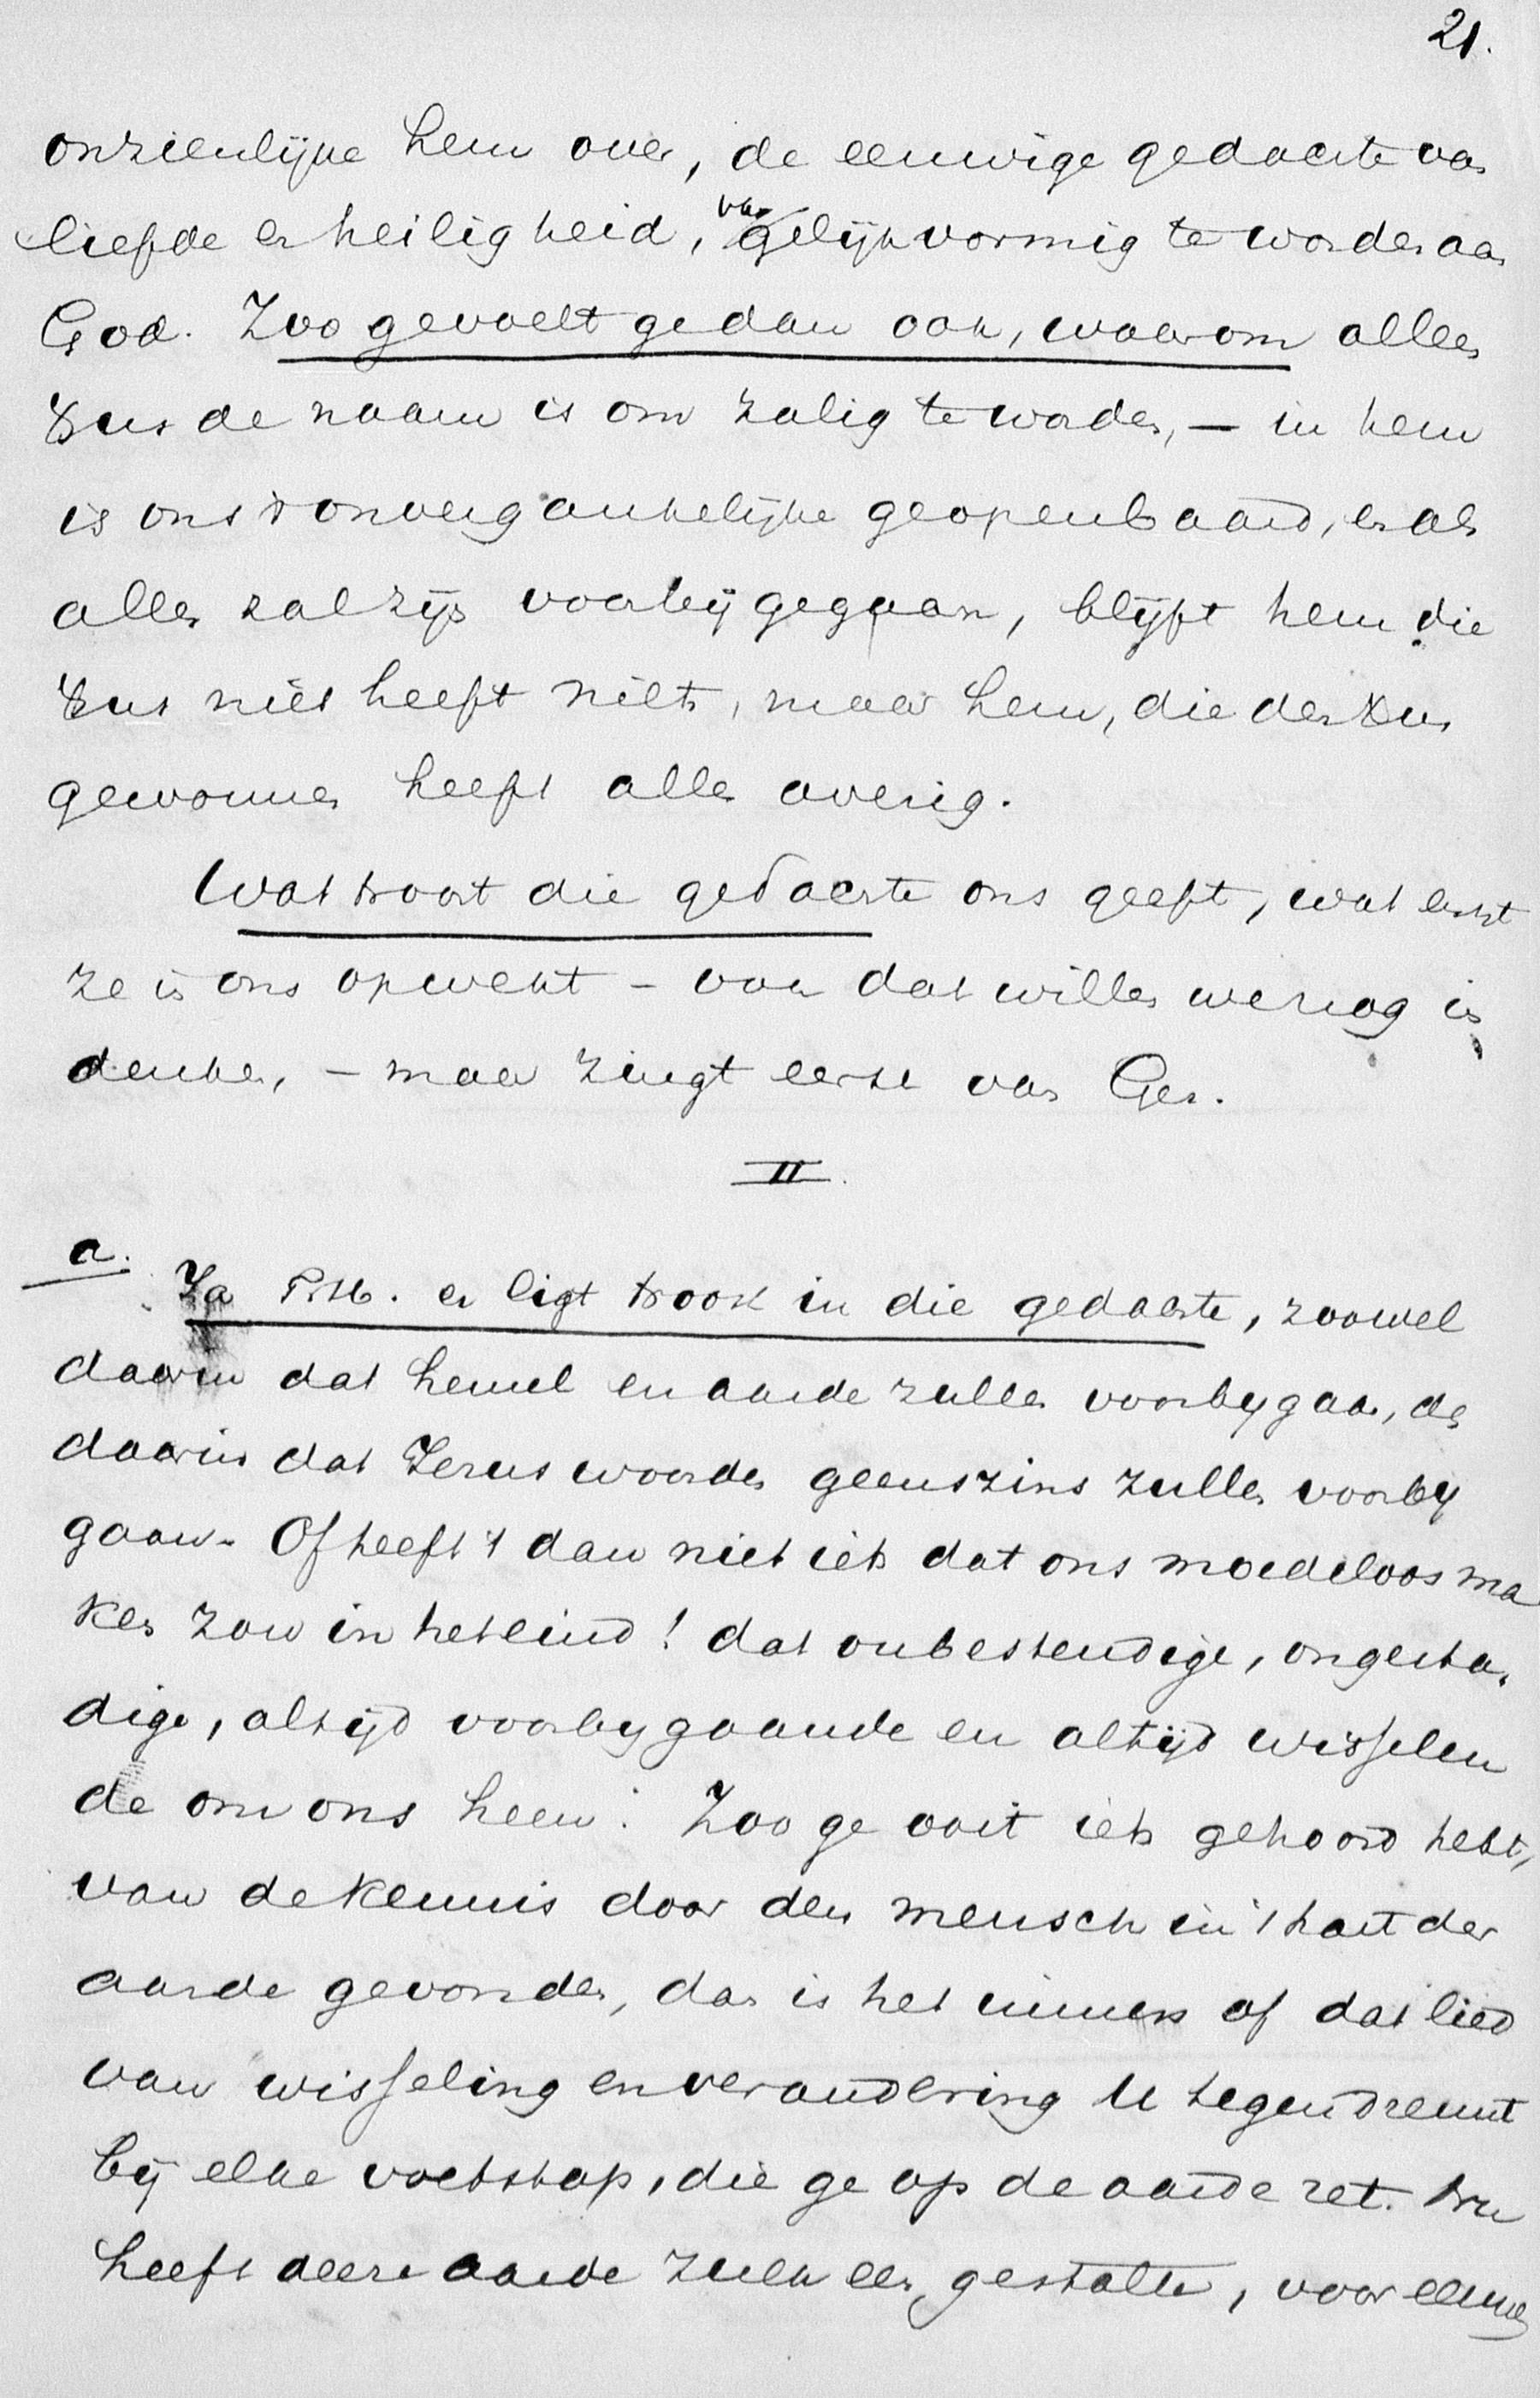 21.
onzienlijke hem over, de eeuwige gedachte van
liefde en heiligheid, van gelijkvormig te worden aan
God. Zoo gevoelt ge dan ook, waarom alleen
Xus de naam is om zalig te worden, — in hem
is ons 't onvergankelijke geopenbaard, en als
alles zal zijn voorbijgegaan, blijft hem die
Xus niet heeft niets, maar hem, die den Xus
gewonnen heeft alles overig.
Wat troost die gedachte ons geeft, wat ernst
ze in ons opwekt – van dat willen we nog in
denken, – maar zingt eerst van Gez.
II.
a.
Ja M. er ligt troost in die gedachte, zoowel
daarin dat hemel en aarde zullen voorbygaan, als
daarin dat Jezus woorden geenszins zullen voorby
gaan. Of heeft 't dan niet iets dat ons moedeloos ma
ken zou in het eind! dat onbestendige, ongesta-
dige, altijd voorbygaande en altijd wisselen
de om ons heen. Zoo ge ooit iets gehoord hebt,
van de kennis door den mensch in 't hart der
aarde gevonden, dan is het immers of dat lied
van wisseling en verandering U tegendreunt
bij elke voetstap, die ge op de aarde zet. Nu
heeft deze aarde zulk een gestalte, voor eeuwen